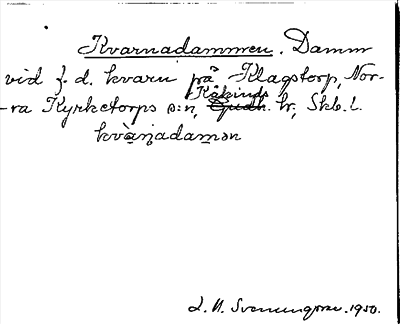 Kvarnadammen. Damm
vid f. d. kvarn på Klagstorp, Nor-
ra Kyrketorps s:n, Kåkinds hr, Skb. l.
kvà̱ṇadamən
L. M. Svenungsson. 1950.